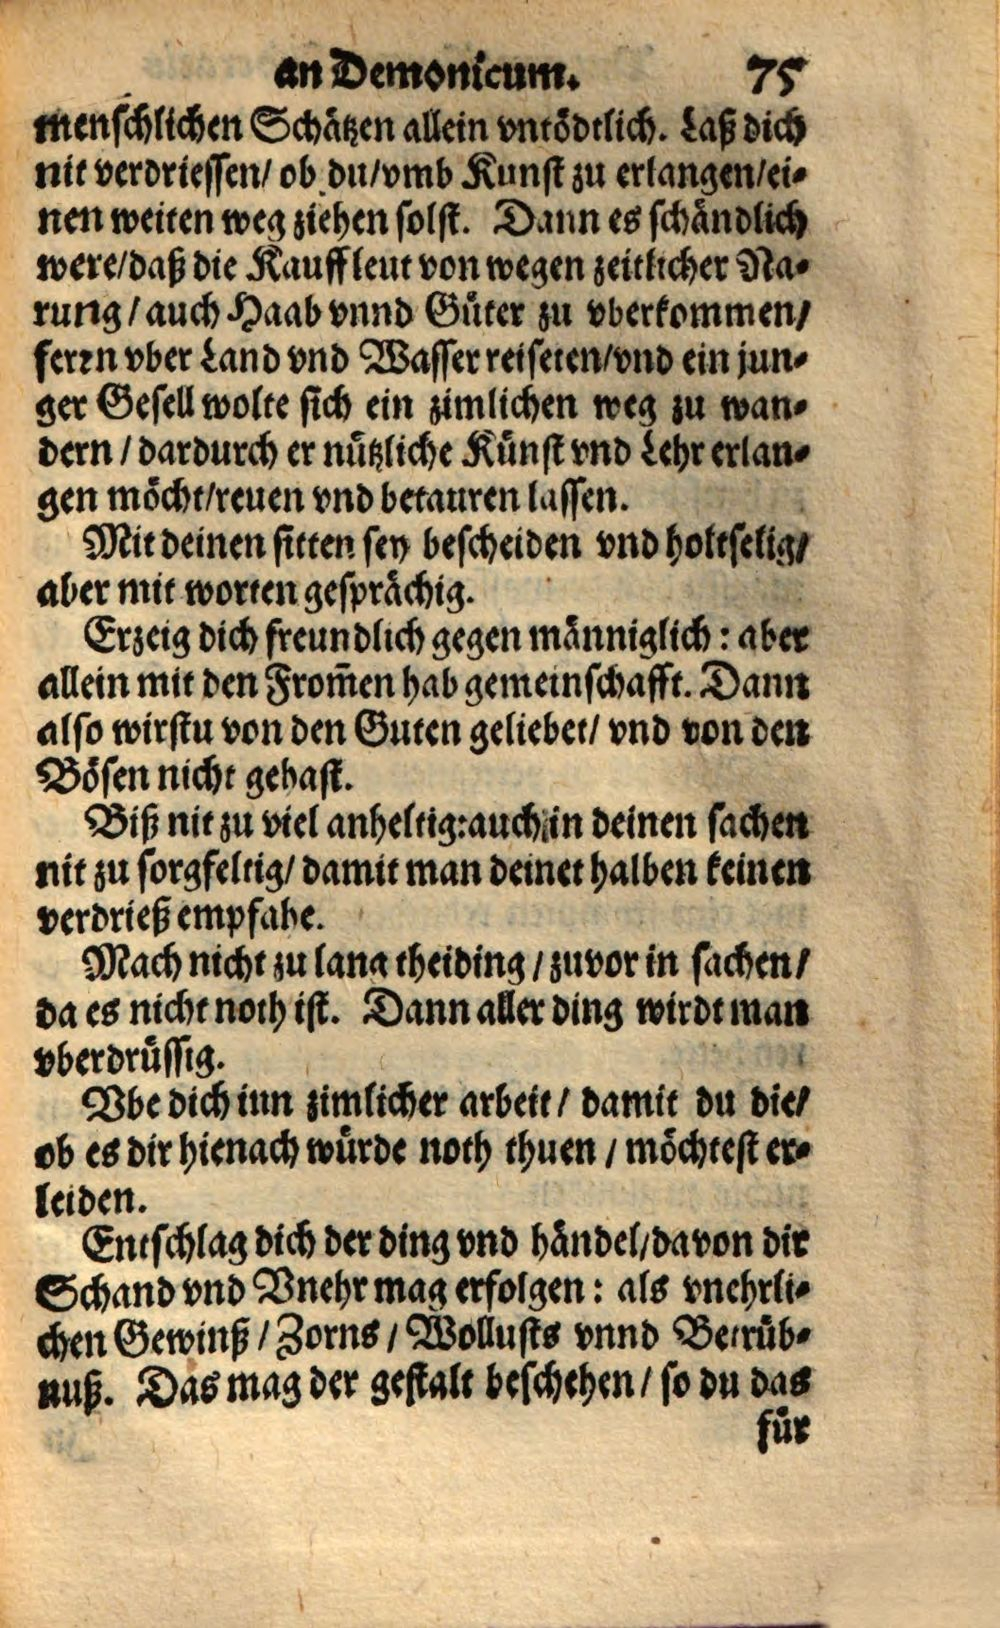 an Demonicum. 75
menschlichen Schätzen allein vntödtlich. Laß dich
nit verdriessen/ ob du/vmb Kunst zu erlangen/ei-
nen weiten weg ziehen solst. Dann es schändlich
were/daß die Kauffleut von wegen zeitlicher Na-
rung/auch Haab vnnd Güter zu vberkommen/
ferrn vber Land vnd Wasser reiseten/vnd ein jun-
ger Gesell wolte sich ein zimlichen weg zu wan-
dern/dardurch er nützliche Künst vnd Lehr erlan-
gen möcht/reuen vnd betauren lassen.
Mit deinen sitten sey bescheiden vnd holtselig/
aber mit worten gesprächig.
Erzeig dich freundlich gegen männiglich: aber
allein mit den From̄en hab gemeinschafft. Dann
also wirstu von den Guten geliebet/ vnd von den
Bösen nicht gehast.
Biß nit zu viel anheltig:auch in deinen sachen
nit zu sorgfeltig/ damit man deinet halben keinen
verdrieß empfahe.
Mach nicht zu lang theiding/zuvor in sachen/
da es nicht noth ist. Dann aller ding wirdt man
vberdrüssig.
Vbe dich inn zimlicher arbeit/ damit du die/
ob es dir hienach würde noth thuen/möchtest er-
leiden.
Entschlag dich der ding vnd händel/davon dir
Schand vnd Vnehr mag erfolgen: als vnehrli-
chen Gewinß/Zorns/Wollusts vnnd Betrüb-
nuß. Das mag der gestalt beschehen/ so du das
für